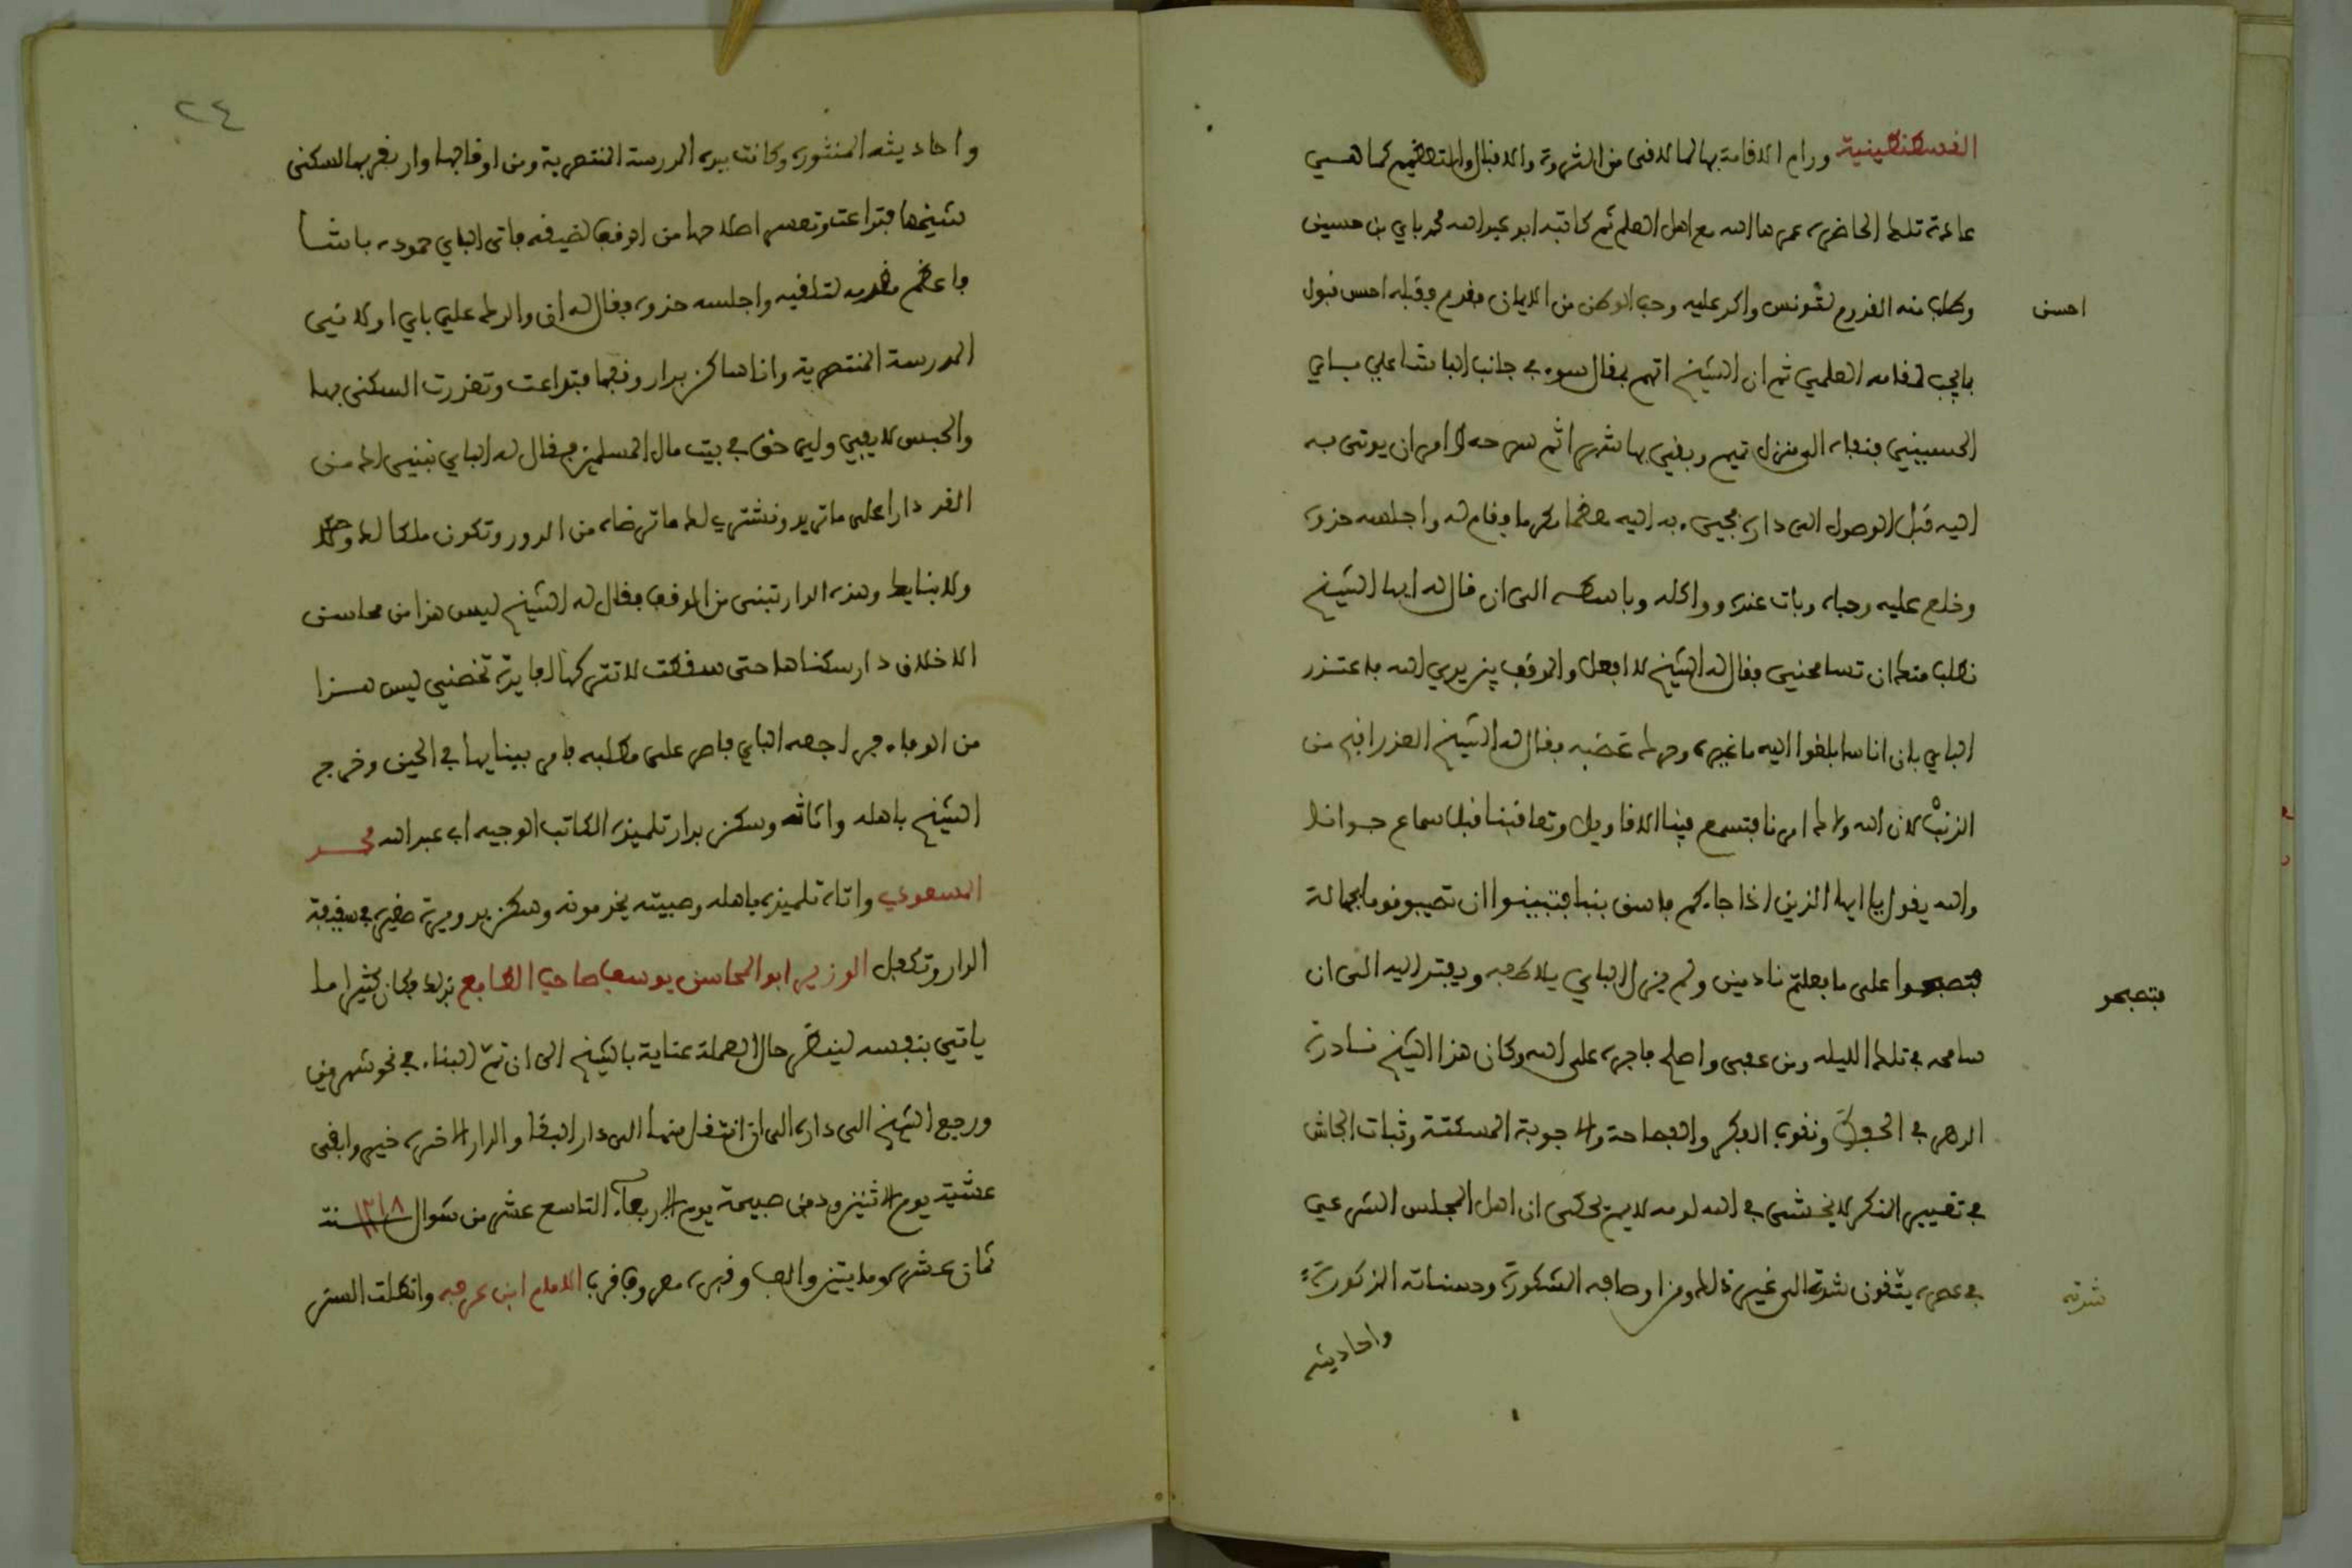 القسطنطينية ورام الاقامة بها لما لاقى من الثروة والاقبال والتعظيم كما هي
عادة تلك الحاضرة عمرها الله مع اهل العلم ثم كاتبه ابو عبد الله محمد باي بن حسين
وطلب منه القدوم لتونس واكد عليه وحب الوطن من الايمان فقدم وقبله احسن قبول
احسن
يجب لمقامه العلمي ثم ان الشيخ اتهم بمقال سوء في جانب الباشا علي باي
الحسيني فنفاه الى منزل تميم وبقي بها شهرا ثم سرحه وامر ان يوتى به
اليه قبل الوصول الى داره فجيء به اليه معظما مكرما وقام له واجلسه حذوه
وخلع عليه وحباه وبات عنده وواكله وباسطه الى ان قال له ايها الشيخ
نطلب منك ان تسامحني فقال له الشيخ لا افعل والموقف بين يدي الله فاعتذر
الباي بان اناسا بلغوا اليه ما غيره وحرك غضبه فقال له الشيخ العذر اقبح من
الذنب لان الله ولاك امرنا فتسمع فينا الاقاويل وتعاقبنا قبل سماع جوابنا
والله يقول يا ايها الذين اذا جاءكم فاسق بنبا فتبينوا ان تصيبوا قوما بجهالة
فتصبحوا على ما فعلتم نادمين ولم يزل الباي يلاطفه ويعتذر اليه الى ان
فتصبحو
سامحه في تلك الليلة ومن عفى واصلح فاجره على الله وكان هذا الشيخ نادرة
الدهر في الحفظ ونفوذ الفكر والفصاحة والاجوبة المسكتة وثبات الجاش
في تغيير المنكر لا يخشى في الله لومة لايم حكى ان اهل المجلس الشرعي
في عصره يتقون شدته الى غير ذلك من اوصافه المشكورة وحسناته المذكورة
شدته
واحاديثه
٢٤
واحاديثه المنثورة وكانت بيده المدرسة المنتصرية ومن اوقافها دار يقر بها لسكنى
شيخها فتداعت وتعسر اصلاحها من الوقف لضيقه فاتى الباي حموده باشا
فاعظم مقدمه لتلقيه واجلسه حذوه فقال له ان والدك علي باي اولاني
المدرسة المنتصرية وانا ساكن بدار وقفها فتداعت وتعذرت السكنى بها
والحبس لا يفي ولي حق في بيت مال المسلمين فقال له الباي نبني لك من
الغد دارا على ما تريد ونشتري لك ما ترضاه من الدور وتكون ملكا لك
ولابنايك وهذه الدار تبنى من الوقف فقال له الشيخ ليس هذا من محاسن
الاخلاق دار سكناها حتى سقطت لا تتركها لفايدة تخصني ليس هذا
من الوفاء فراجعه الباي فاصر على مطلبه فامر ببنايها في الحين وخرج
الشيخ باهله واثاثه وسكن بدار تلميذه الكاتب الوجيه ابي عبد الله محمد
المسعودي واتاه تلميذه باهله وصبيته يخدمونه وسكن بدويرة صغيرة في سقيفة
الدار وتكفل الوزير ابو المحاسن يوسف صاحب الطابع بذلك فكان كثيرا ما
ياتي بنفسه لينظر حال العملة عناية بالشيخ الى ان تم البناء في نحو شهرين
ورجع الشيخ الى داره الى ان انتقل منها الى دار البقا والدار الاخرة خير وابقى
عشية يوم الاثنين ودفن صبيحة يوم الاربعاء التاسع عشر من شوال سنة ١٢١٨
ثمان عشرة ومايتين والف وقبره معروف قرب الامام ابن عرفه وانطلت الستر